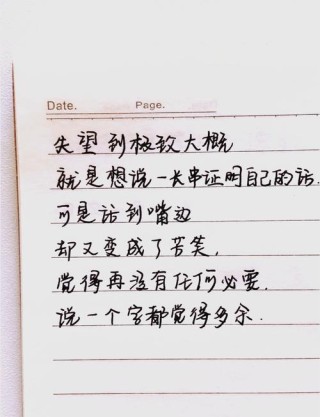 Date.	Page.
失望到极致大概
就是想说一长串证明自己的话.
可是话到嘴边
却又变成了苦笑,
觉得再没有任何必要,
说一个字都觉得多余.